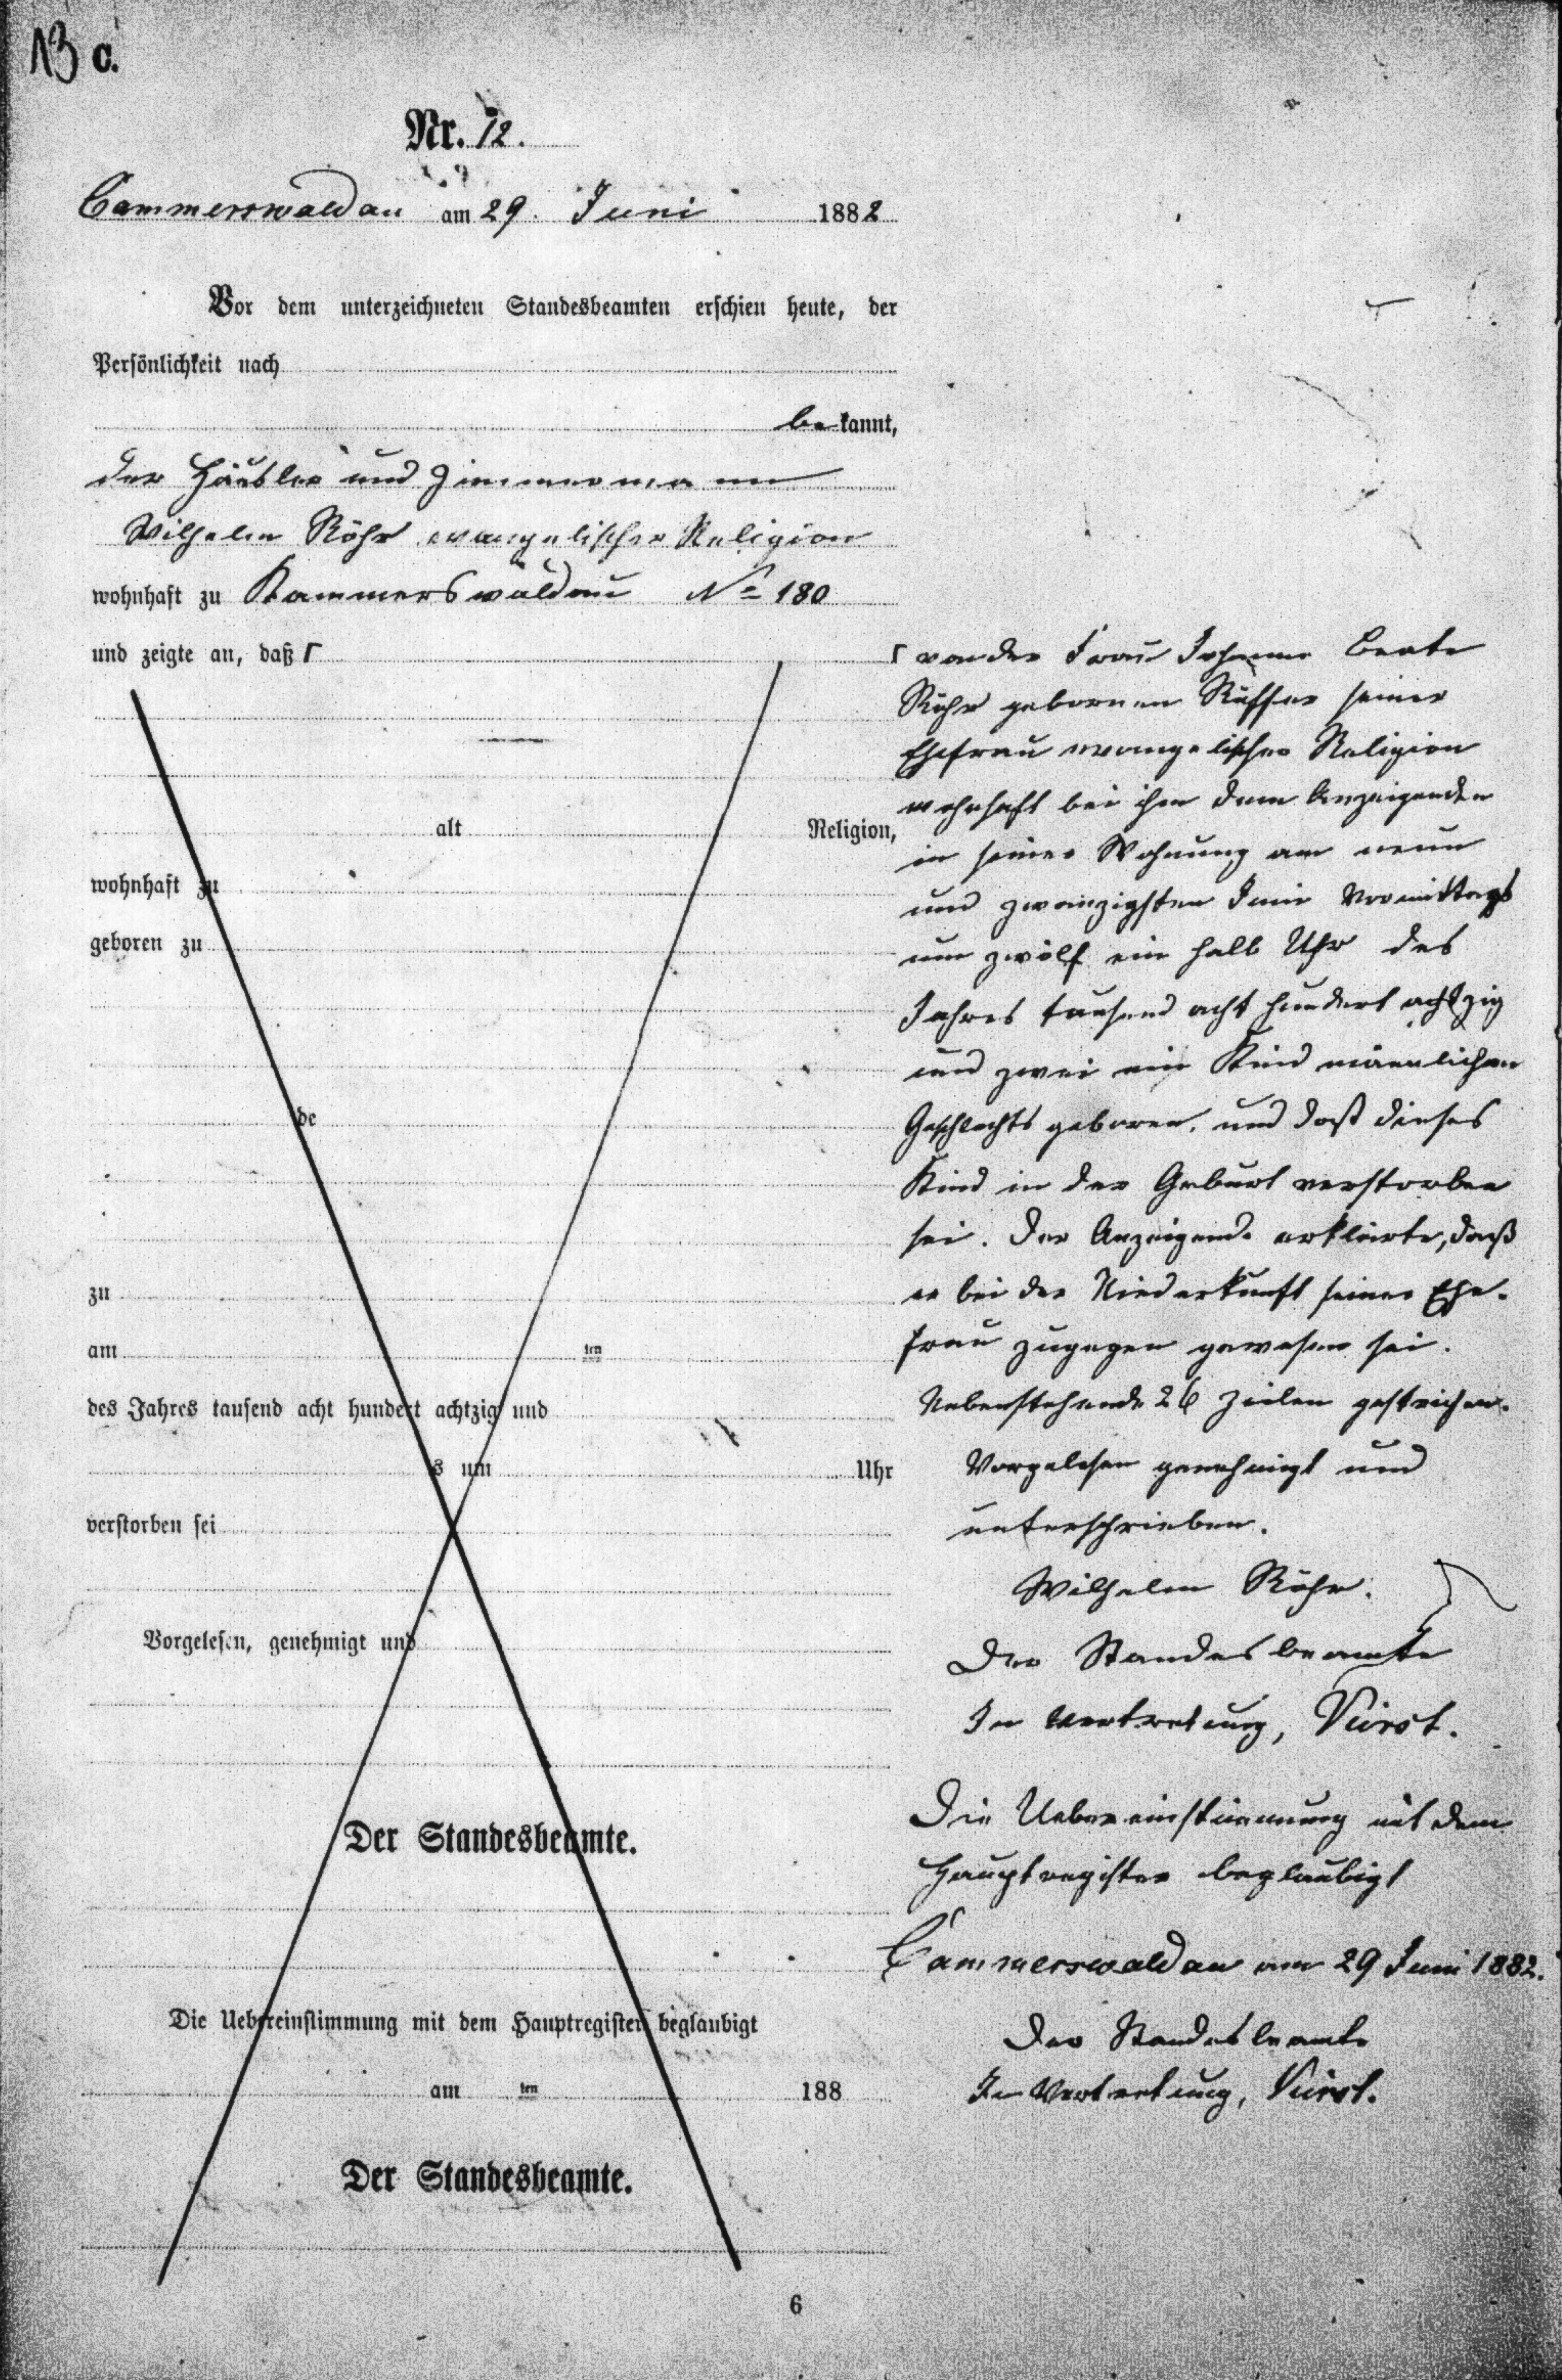 13 C.
Nr. 12.
Cammerswaldau am 29. Juni 1882
Vor dem unterzeichneten Standesbeamten erschien heute, der
Persönlichkeit nach
bekannt,
der Häusler und Zimmermann
Wilhelm Röhr evangelischer Religion
wohnhaft zu Kammerswaldau No 180
und zeigte an, daß Γ
alt Religion,
wohnhaft zu
geboren zu
de
zu
am ten
des Jahres tausend acht hundert achtzig und
s um Uhr
verstorben sei
Vorgelesen, genehmigt und
Der Standesbeamte.
Die Uebereinstimmung mit dem Hauptregister beglaubigt
am ten 188
Der Standesbeamte.
Γ von der Frau Johanne Beate
Röhr gebornen seiner
Ehefrau evangelischer Religion
wohnhaft bei ihm dem Anzeigenden
in seiner Wohnung am neun
und zwanzigsten Juni Vormittags
um zwölf ein halb Uhr des
Jahres tausend acht hundert achtzig
und zwei ein Kind männlichen
Geschlechts geboren, und daß dieses
Kind in der Geburt verstorben
sei. Der Anzeigende erklärte, daß
er bei der Niederkunft seiner Ehe-
frau zugegen gewesen sei.
Nebenstehende 26 Zeilen gestrichen.
Vorgelesen genehmigt und
unterschrieben.
Wilhelm Röhr.
Der Standesbeamte
In Vertretung,
Die Uebereinstimmung mit dem
Hauptregister beglaubigt
Cammerswaldau am 29 Juni 1882.
Der Standesbeamte
In Vertretung,
6